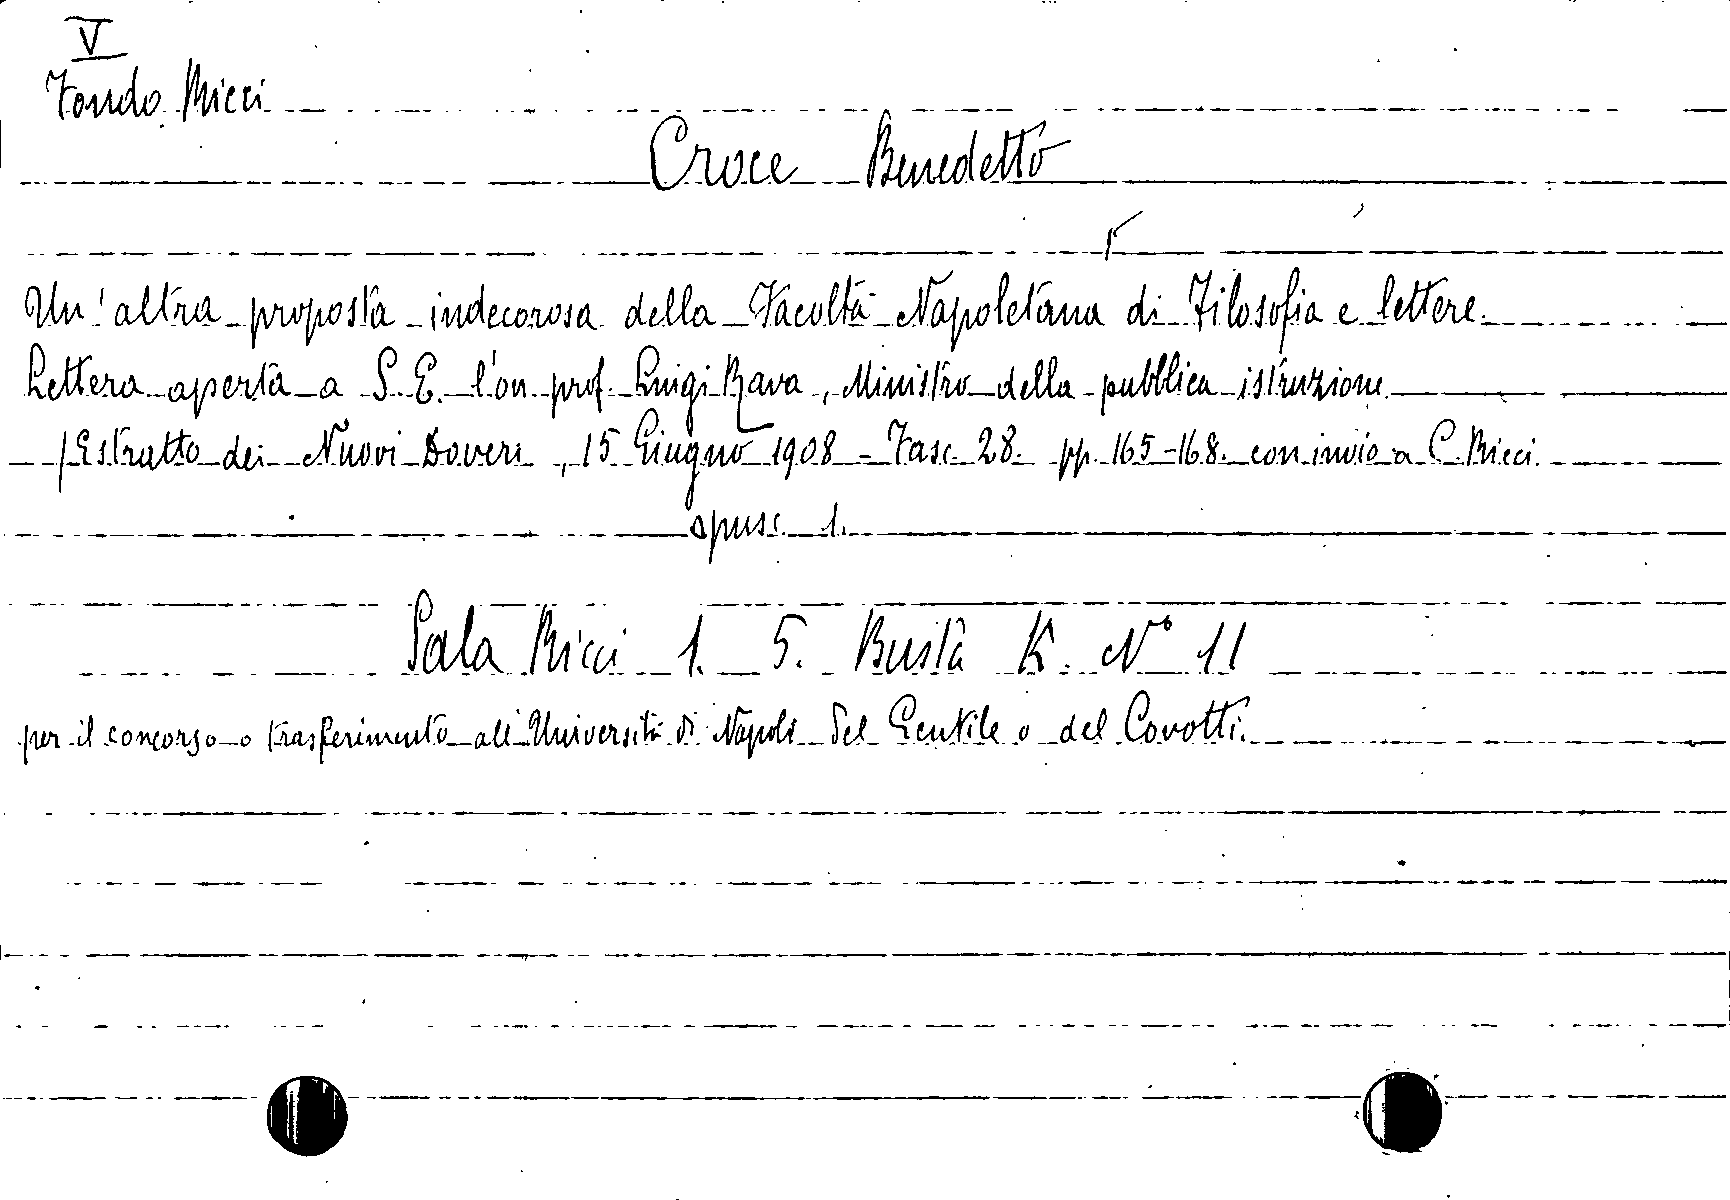 V
Fondo Ricci
Croce Benedetto
Un'altra proposta indecorosa della Facoltà Napoletana di Filosofia e lettere.
Lettera aperta a S. E. l'on prof. Luigi Rava, Ministro della pubblica istruzione
(Estratto dei Nuovi Doveri, 15 Giugno 1908 - Fasc. 28. pp. 165-168. con invio a C. Ricci.
opusc. 1.
Sala Ricci 1. 5. Busta K. N° 11
per il concorso o trasferimento all'Università di Napoli del Gentile o del Covotti.